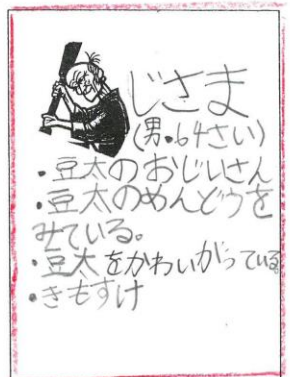 じさま
(男・64さい)
・豆太のおじいさん
・豆太のめんどうを
みている。
・豆太をかわいがっている
・きもすけ